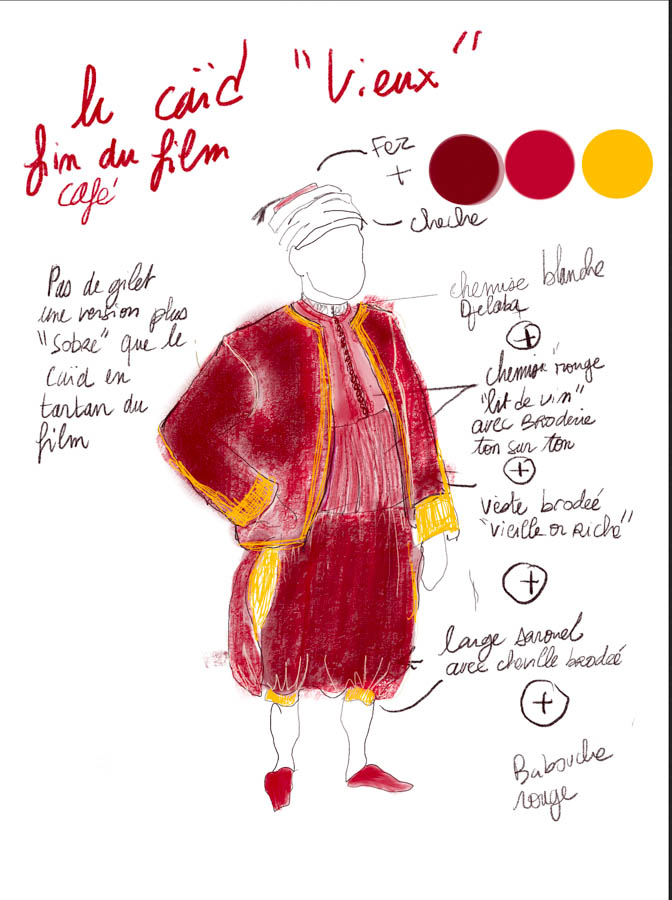 le caïd "Vieux"
fin du film
café
Fez
+
cheche
Pas de gilet
une version plus
"sobre" que le
Caïd en
tartan du
film
chemise blanche
Djelaba
+
chemise rouge
"lit de vin"
avec BRODERIE
ton sur ton
+
veste brodeé
"vieille or Riche"
+
large sarouel
avec cheville brodeé
+
Babouche
rouge